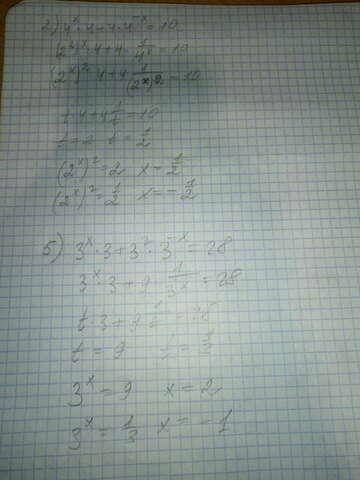 2) 4^x · 4 + 4 · 4^-x = 10
(2^2)^x · 4 + 4 · 1/4^x = 10
(2^x)^2 · 4 + 4 1/(2^x)^2 = 10
t · 4 + 4 1/t = 10
t = 2 t = 1/2
(2^x)^2 = 2 x = 1/2
(2^x)^2 = 1/2 x = -1/2
5) 3^x · 3 + 3^2 · 3^-x = 28
3^x · 3 + 9 · 1/3^x = 28
t · 3 + 9 1/t = 28
t = 9 t = 1/3
3^x = 9 x = 2
3^x = 1/3 x = -1